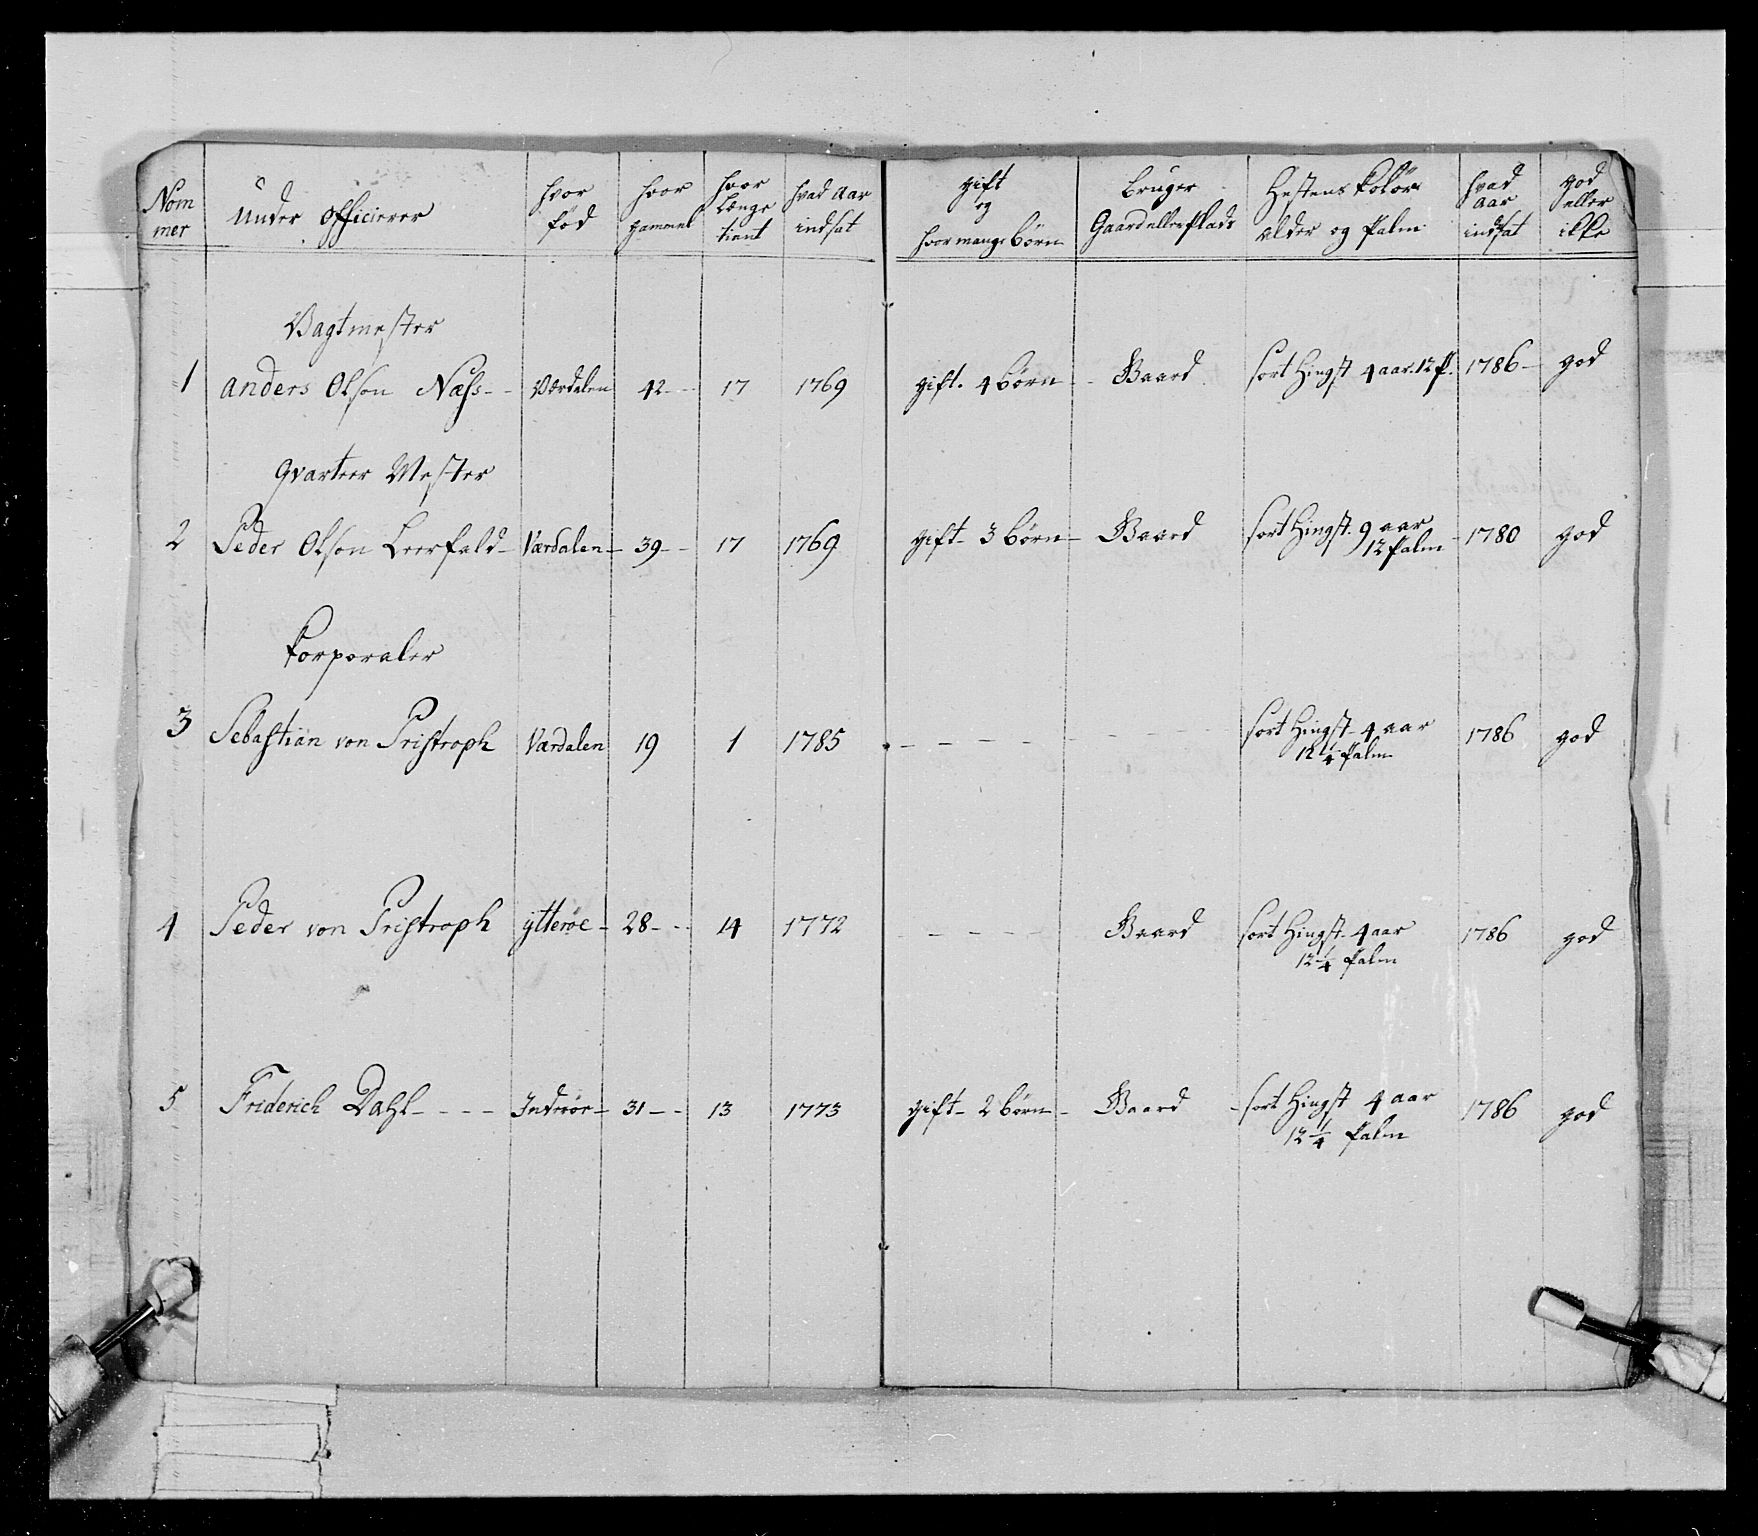 Nom mer | Under Officierer | hvor fød | hvor gammel | hvor Længe tient | hvad Aar indsat | gift og hvor mange børn | bruger Gaard eller Plads | Hestens Kolør alder og Palm | hvad aar indsat | god eller ikke
Vagtmester
1 | Anders Olson Næss - - | Værdalen | 42 - - | 17 | 1769 | gift. 4 børn - | Gaard | sort Hingst 4 aar. 12 P. | 1786 - | god
Qvarteer Mester
2 | Peder Olson Leerfald - | Værdalen - | 39 - - | 17 | 1769 | gift - 3 børn - | Gaard | sort Hingst. 9 aar 12 Palm | - 1780 | god
Korporaler
3 | Sebastian von Pristroph | Værdalen | 19 | 1 | 1785 | - - - - - | - - - - | sort Hingst - 4 aar 12 1/4 Palm | 1786 | god
4 | Peder von Pristroph | ytterøe - | 28 - - - | 14 | 1772 | - - - - | Gaard | sort Hingst - 4 aar 12 1/4 Palm | 1786 | god
5 | Friderich Dahl - - - - | Inderøe - | 31 - - | 13 | 1773 | gift - 2 børn - | Gaard | - sort Hingst 4 aar 12 1/4 Palm | 1786 | god